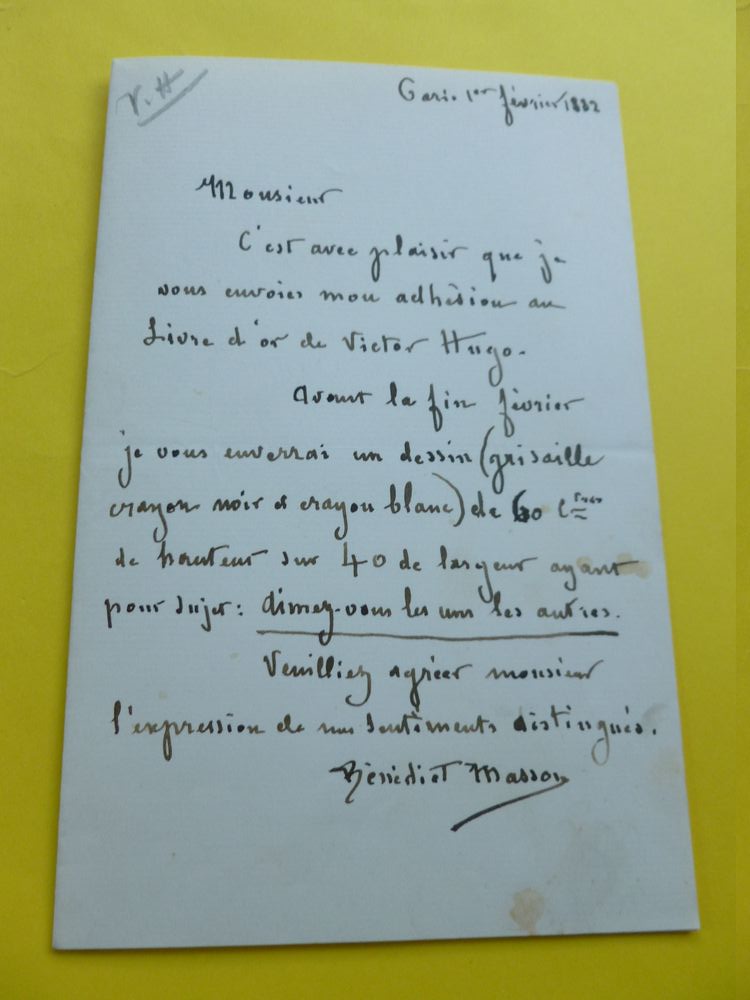 V. H
Paris 1er février 1882
Monsieur
C'est avec plaisir que je
vous envoies mon adhésion au
Livre d'or de Victor Hugo.
Avant la fin février
je vous enverrai un dessin (grisaille
crayon noir et crayon blanc) de 60 Cmes
de hauteur sur 40 de largeur ayant
pour sujet: Aimez-vous les uns les autres.
Veuilliez agréer monsieur
l'expression de mes sentiments distingués.
Bénédict Masson